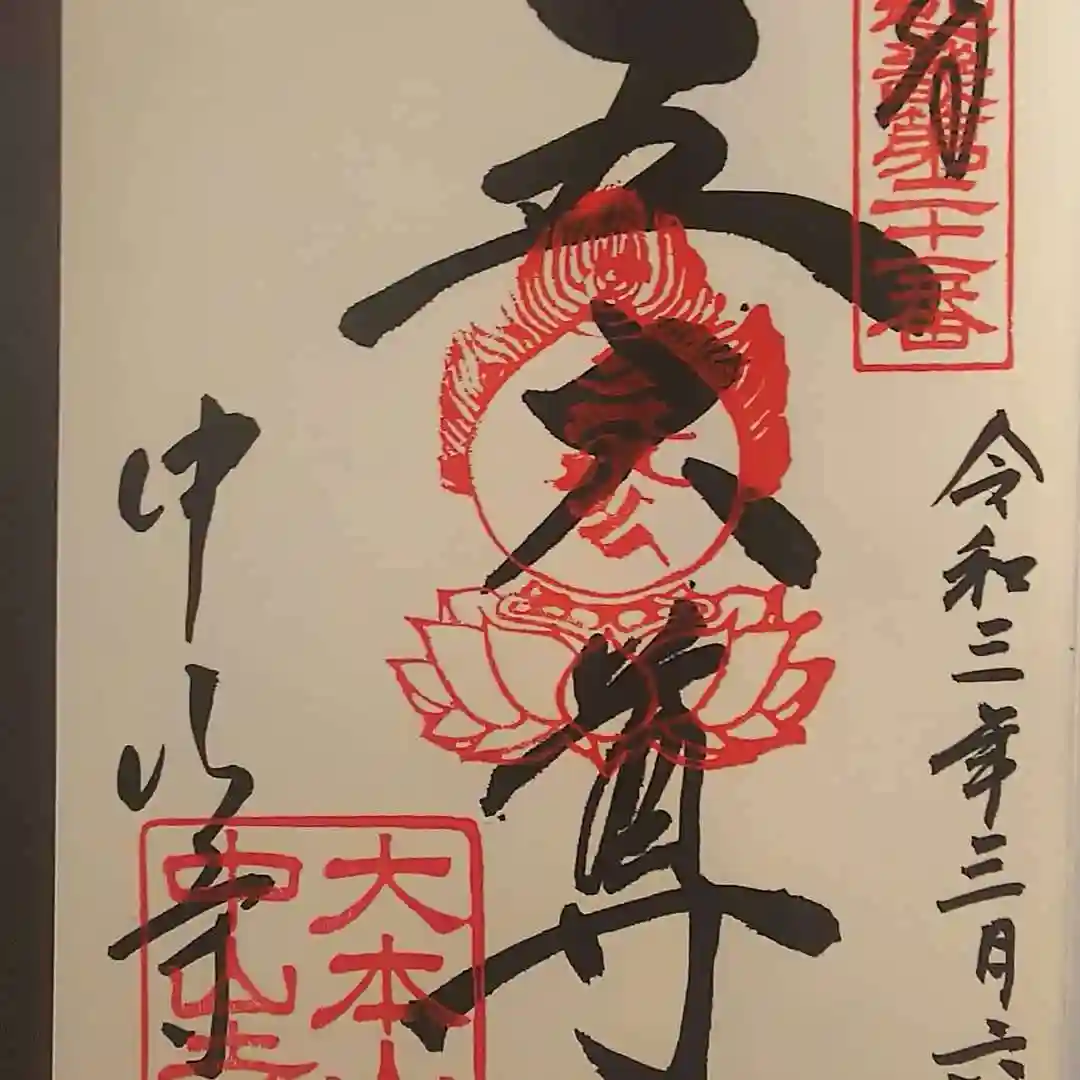 第二十一番
令和三年三月六
五大尊
中山寺
大本山
中山寺